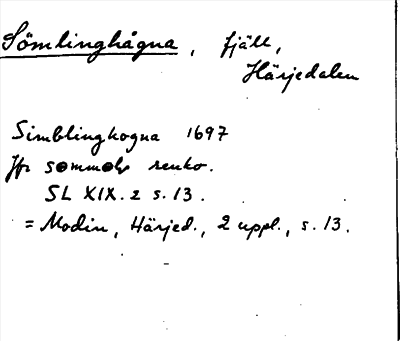 Sömlinghågna, fjäll,
Härjedalen
Simblingkogna 1697
Jfr sommolk renko.
SL XIX. 2 s. 13.
= Modin, Härjed., 2 uppl., s. 13.